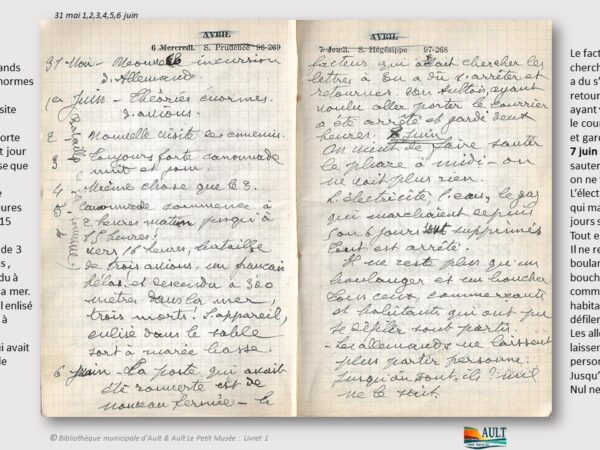 31 mai 1,2,3,4,5,6 juin
ands
normes
site
orte
t jour
se que
e
eures
15
de 3
s ,
du à
a mer.
l enlisé
à
i avait
le
AVRIL
6 Mercredi. S. Prudence 96-269
31 Mai - Nouvelle incursion
d'Allemands
1er Juin - Théories énormes
d'avions.
2 Nouvelle visite des ennemis.
3 Toujours forte canonnade
nuit et jour.
4 Même chose que le 3.
5 Canonnade commence à
2 heures matin jusqu'à
15 heures!
Vers 16 heures, bataille
de trois avions, un français
hélas! est descendu à 300
mètres dans la mer,
trois morts! L'appareil,
enlisé dans le sable
sort à marée basse.
6 Juin - La poste qui avait
été rouverte est de
nouveau fermée - le
Bataille de la Somme
AVRIL
7 Jeudi. S. Hégésippe 97-268
facteur qui allait chercher les
lettres à Eu a dû s'arrêter et
retourner. Von Sultois, ayant
voulu aller porter le courrier
a été arrêté et gardé deux
heures. 7 Juin
On vient de faire sauter
le phare à midi - on
ne voit plus rien.
L'électricité, l'eau, le gaz
qui marchaient depuis
5 ou 6 jours sont supprimés
Tout est arrêté.
Il ne reste plus qu'un
boulanger et un boucher.
Tous ceux, commerçants
et habitants qui ont pu
se défiler sont partis.
- Les allemands ne laissent
plus partir personne.
Jusqu'où sont-ils? nul
ne le sait.
Le fact
cherch
a du s'
retour
ayant v
le cou
et gard
7 juin
sauter
on ne
L'élect
qui ma
jours s
Tout e
Il ne re
boulan
bouch
comm
habita
défiler
Les all
laisser
person
Jusqu'
Nul ne
© Bibliothèque municipale d'Ault & Ault Le Petit Musée : Livret 1
AULT